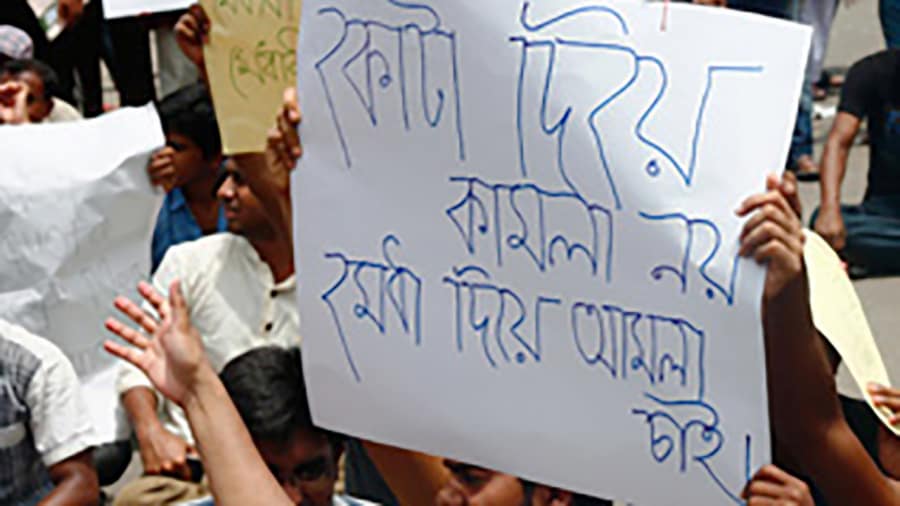 কোটা দিয়ে
কামলা নয়
মেধা দিয়ে আমলা
চাই।